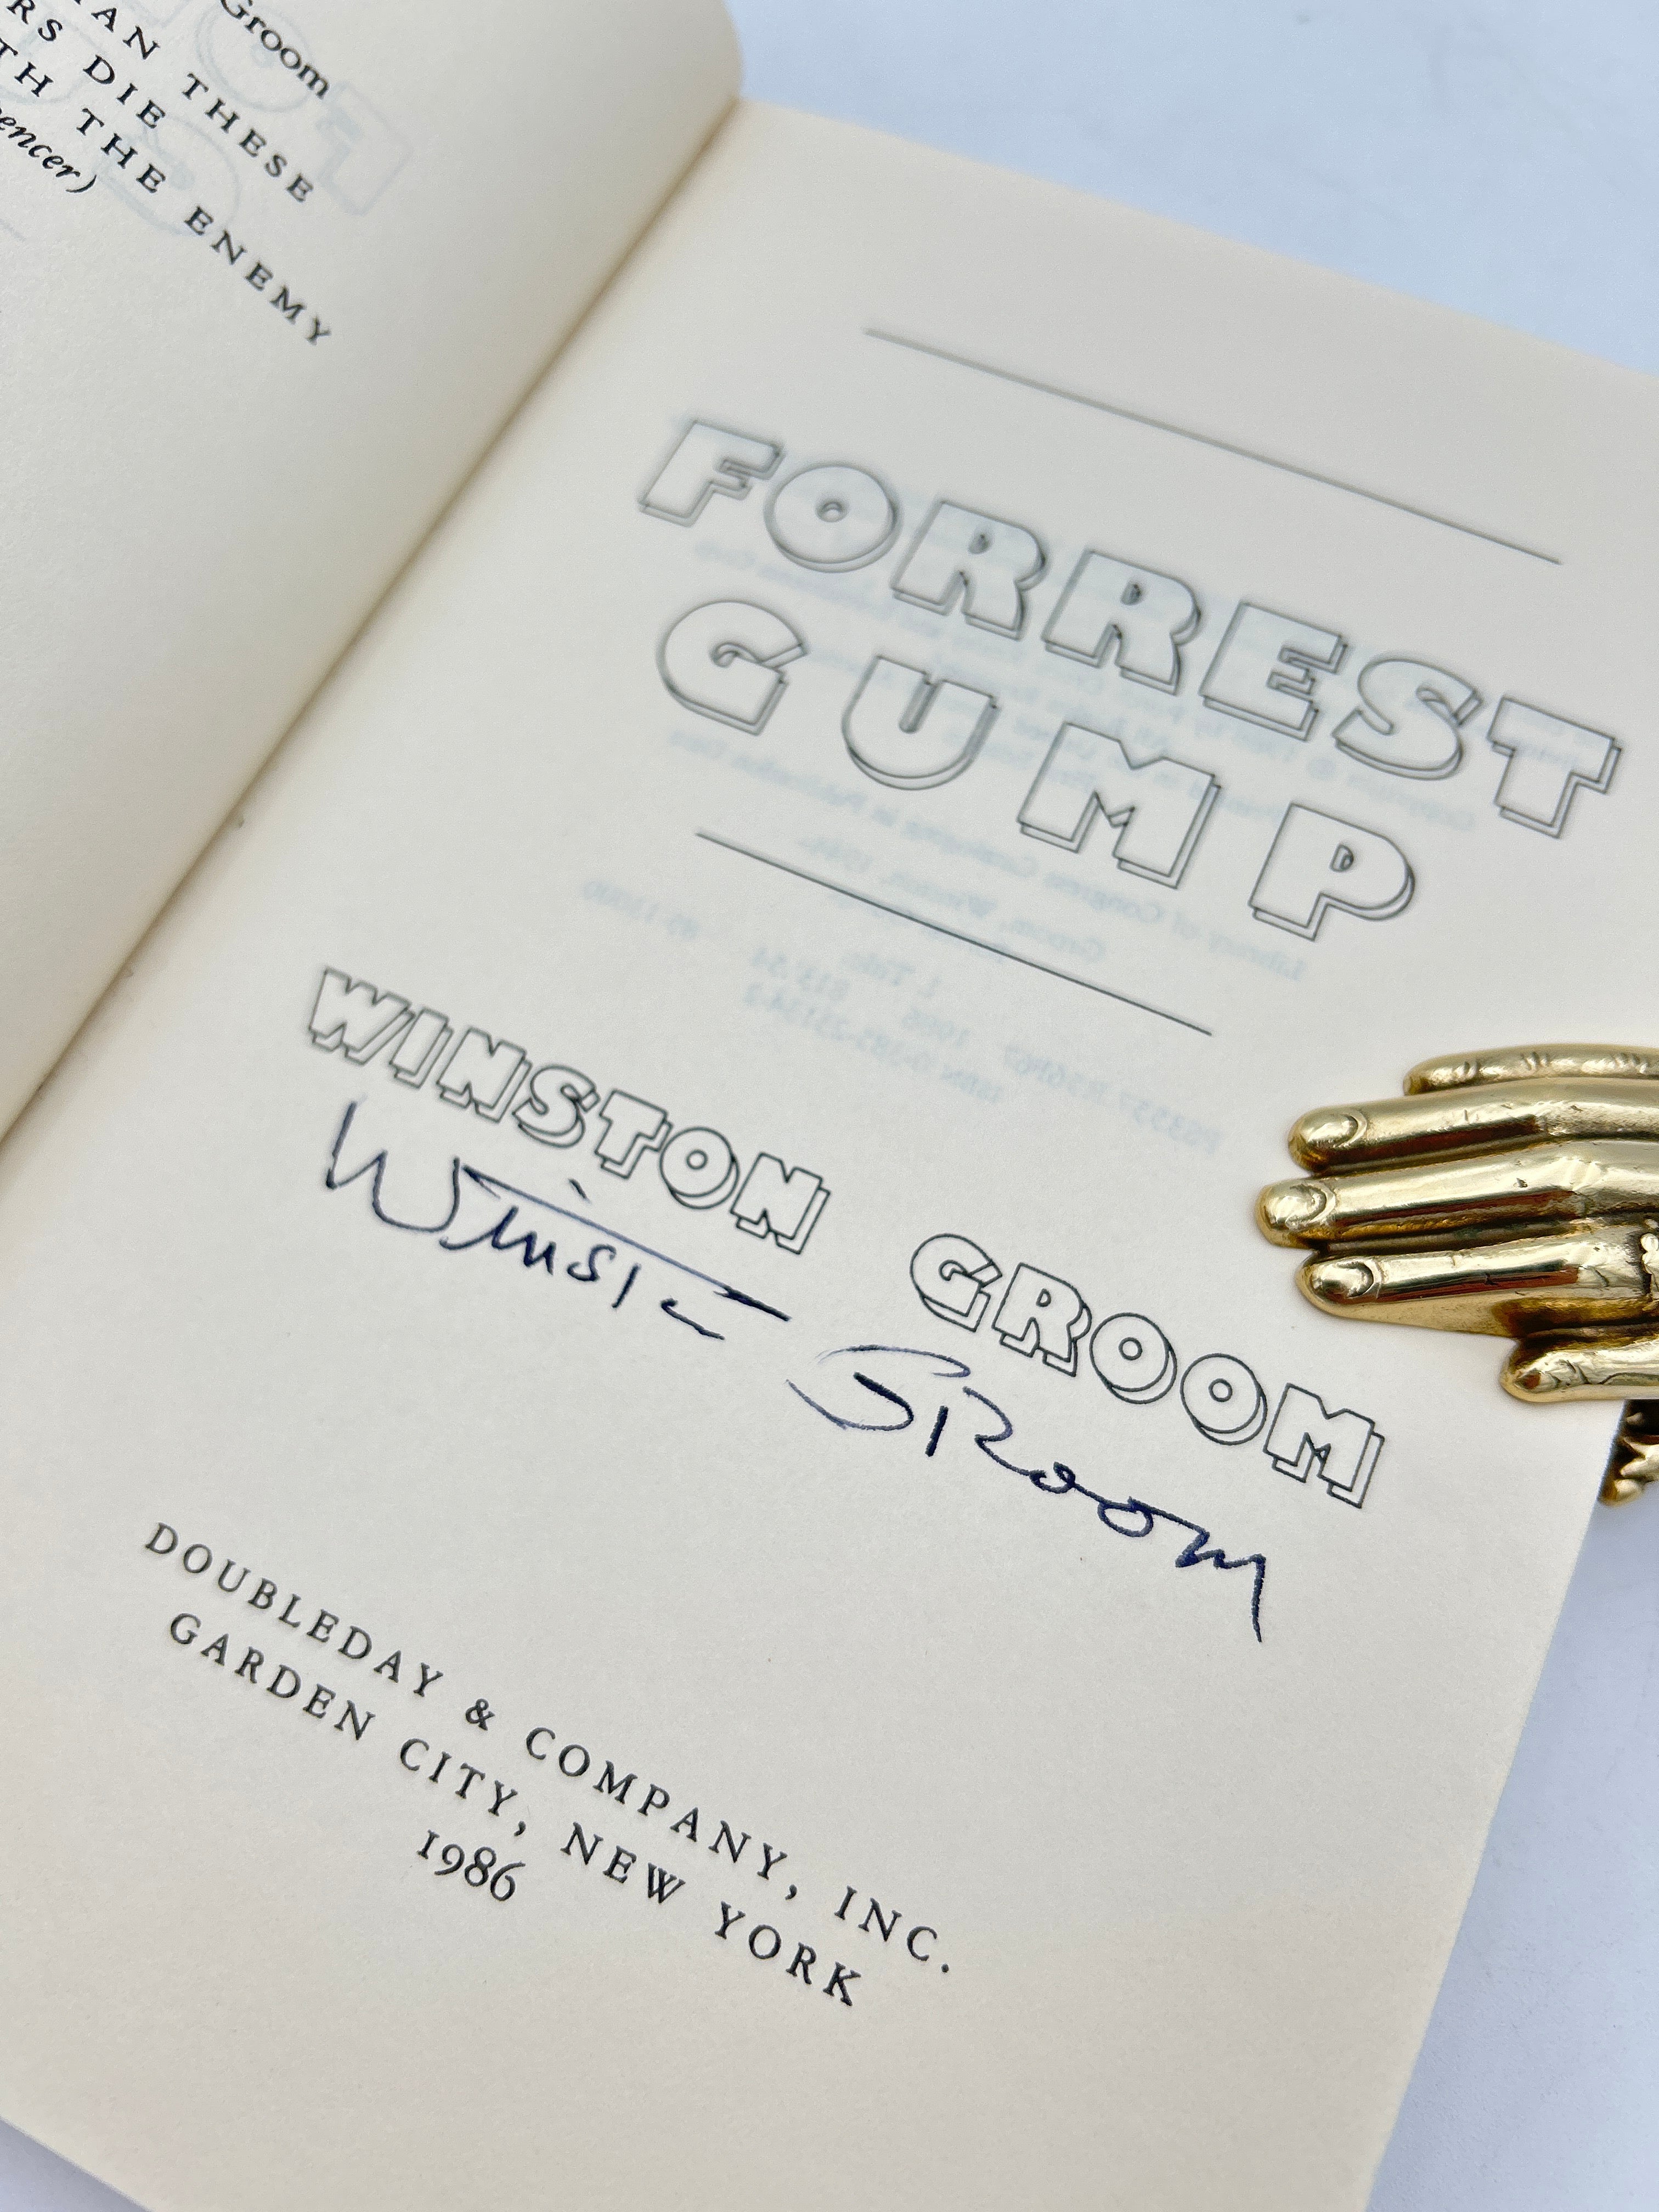 Groom
THESE
RS DIE
TH THE ENEMY
FORREST
GUMP
WINSTON GROOM
Winston Groom
DOUBLEDAY & COMPANY, INC.
GARDEN CITY, NEW YORK
1986